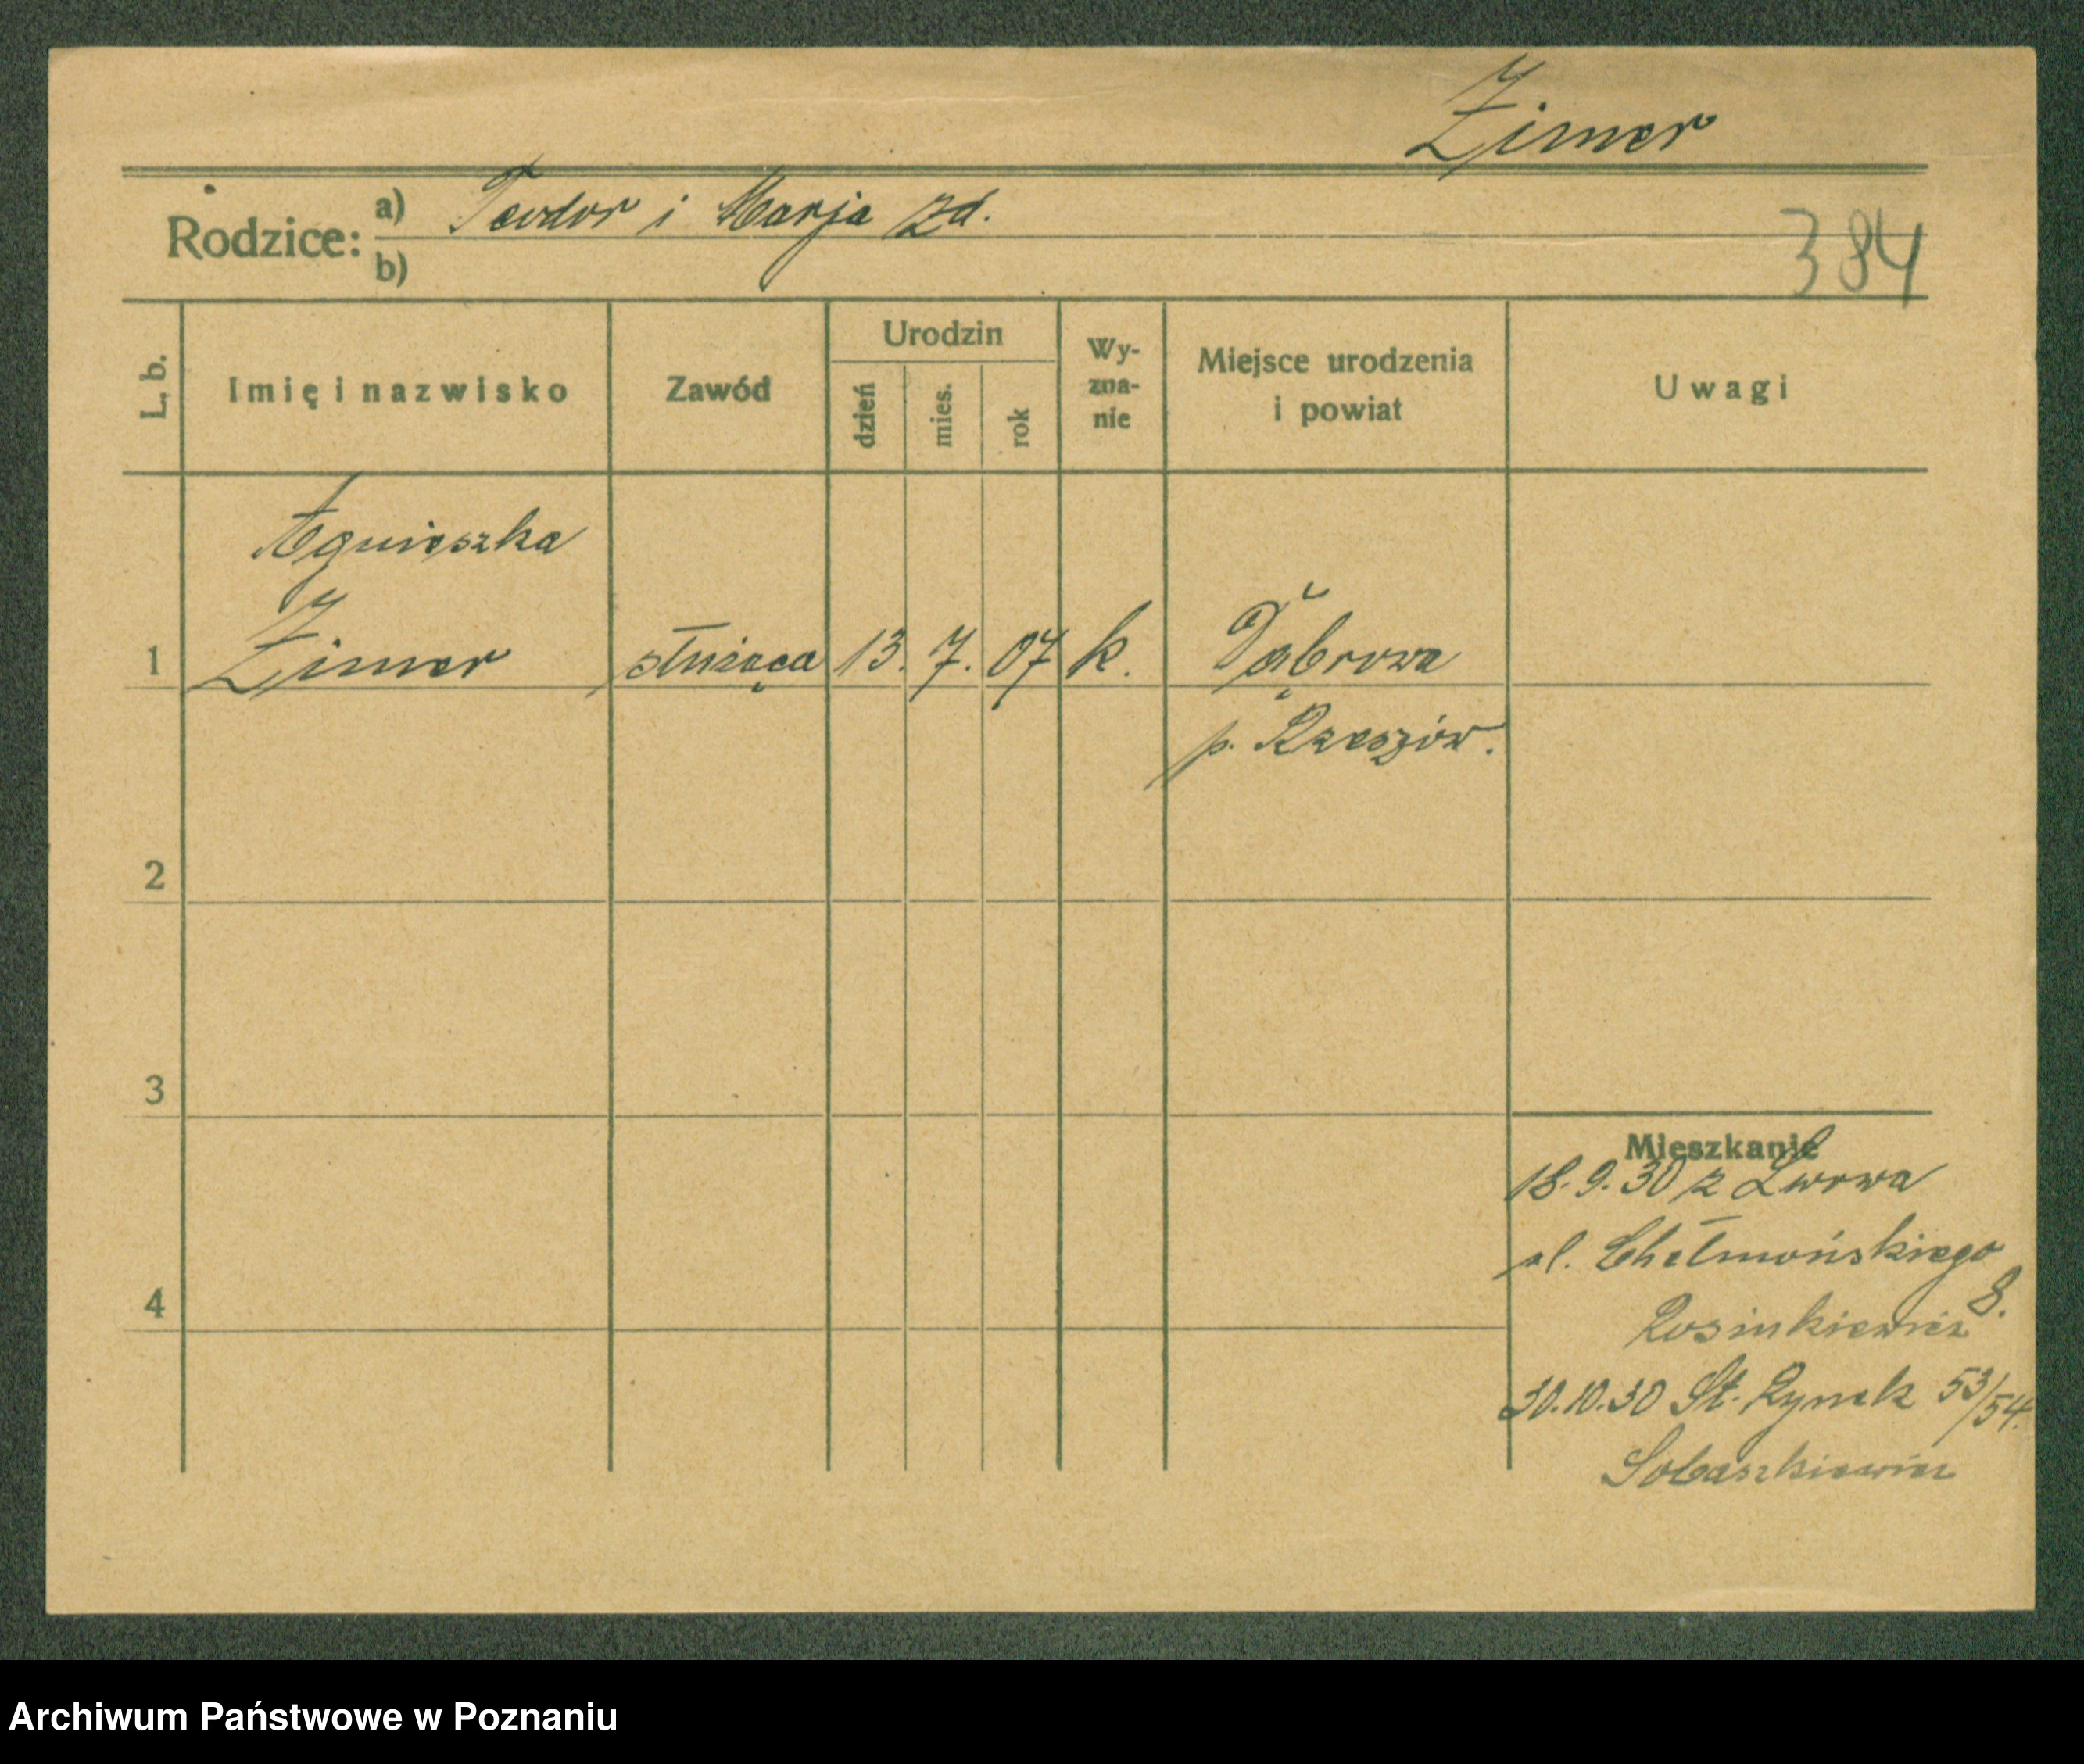 Zimer
Rodzice: a) Teodor i Marja zd.
b)
384
L. b.
Imię i nazwisko
Zawód
Urodzin
dzień
mies.
rok
Wy-
zna-
nie
Miejsce urodzenia
i powiat
Uwagi
Agnieszka
1 Zimer służąca 13. 7. 07 k. Dąbrowa
p. Rzeszów.
2
3
Mieszkanie
18.9.30 z Lwowa
ul. Chełmońskiego
8.
4
Rosinkiewicz
30.10.30 St. Rynek 53/54.
Sobaszkiewicz
Archiwum Państwowe w Poznaniu